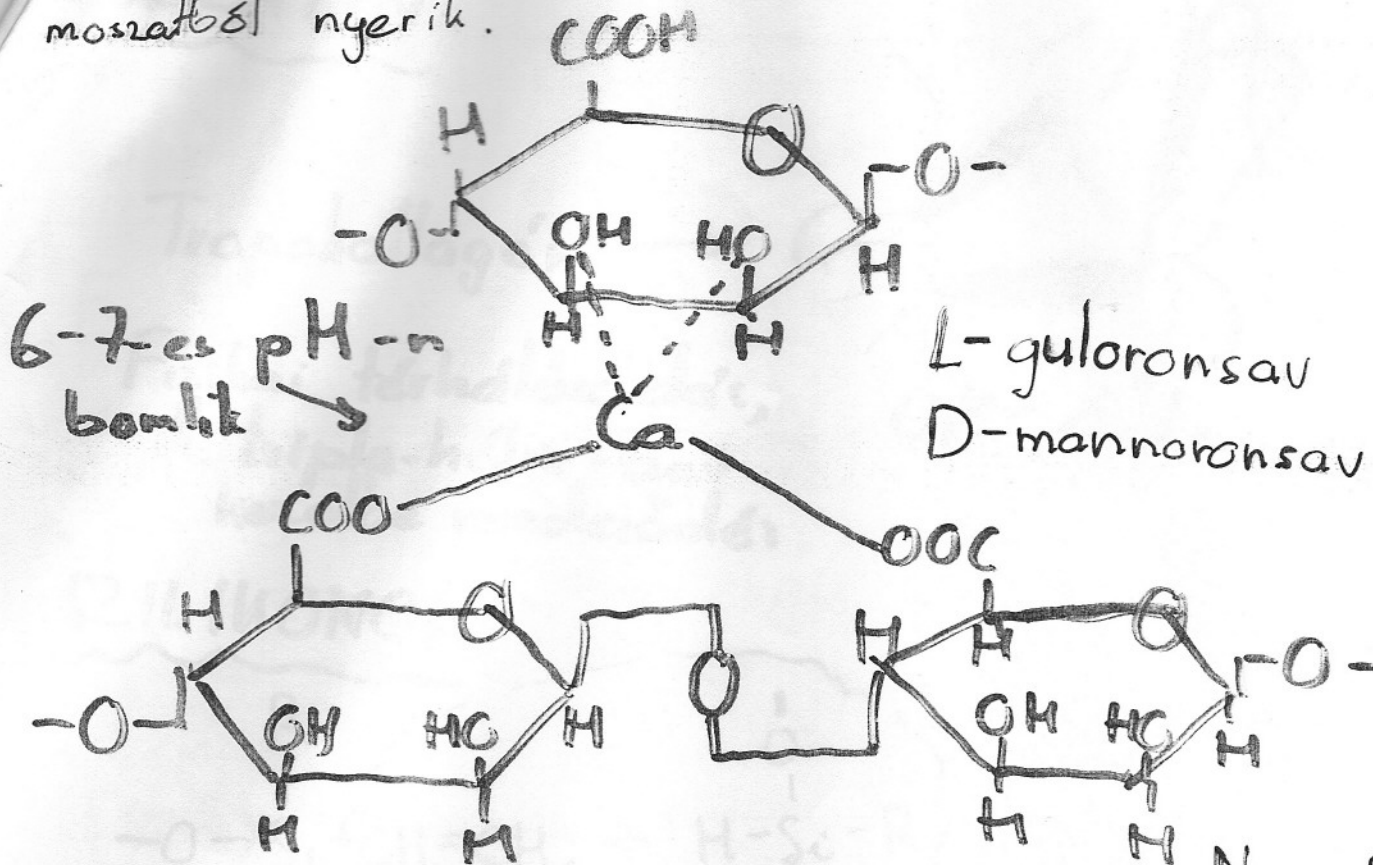 moszatból nyerik.
COOH
H
O
-O-
-O-
OH HO
H
H H
6-7-es pH-n
bomlik
Ca
L-guloronsav
D-mannoronsav
COO
OOC
H
O
H
H
O
-O-
-O-
OH HO
H
O
OH HO
H
H H
H H